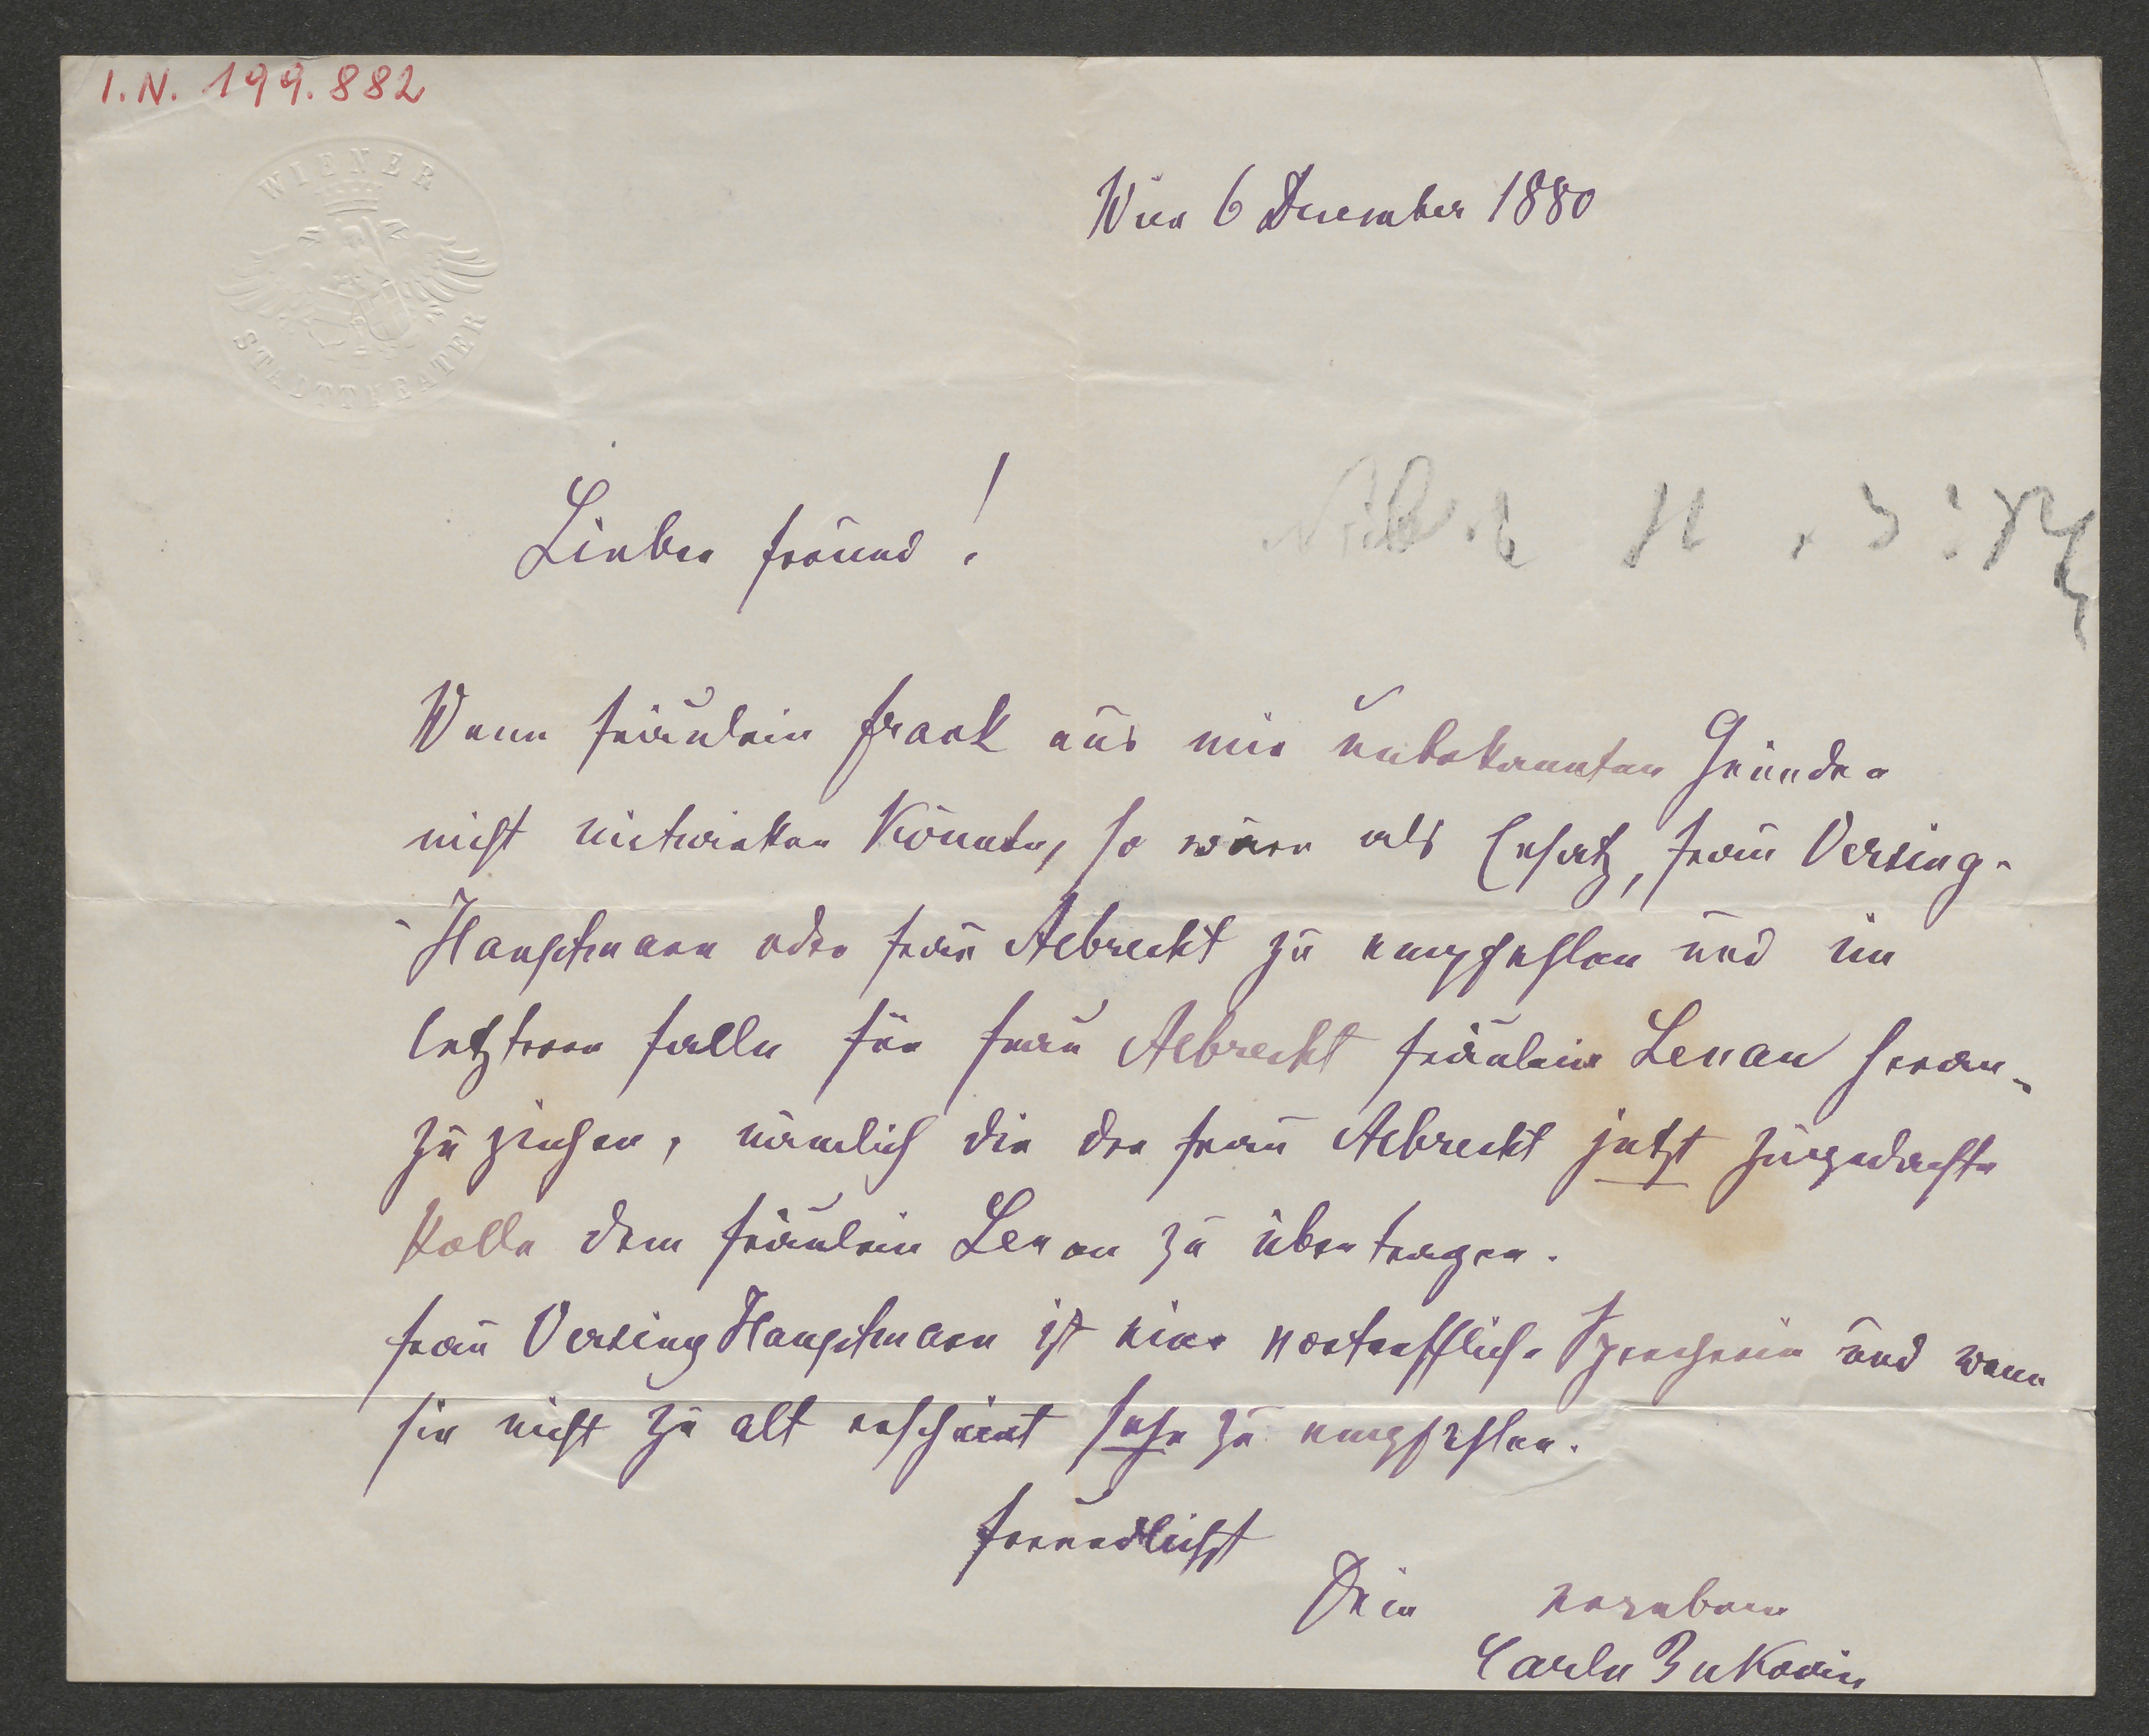 I.N. 199.882
WIENER
STADTTHEATER
Wien 6 December 1880
Lieber Freund!
Wenn Fräulein Frank aus mir unbekannten Gründen
nicht mitwirken könnte, so wäre als Ersatz, Frau Versing-
-Hauptmann oder Frau Albrecht zu empfehlen und im
letzteren Falle für Frau Albrecht Fräulein Lenau heran-
zu ziehen, nämlich die der Frau Albrecht jetzt zugedachte
Rolle dem Fräulein Lenau zu übertragen.
Frau Versing Hauptmann ist eine vortreffliche Sprecherin und wenn
sie nicht zu alt erscheint sehr zu empfehlen.
Freundlichst
Dein ergebener
Carl v Bukovics